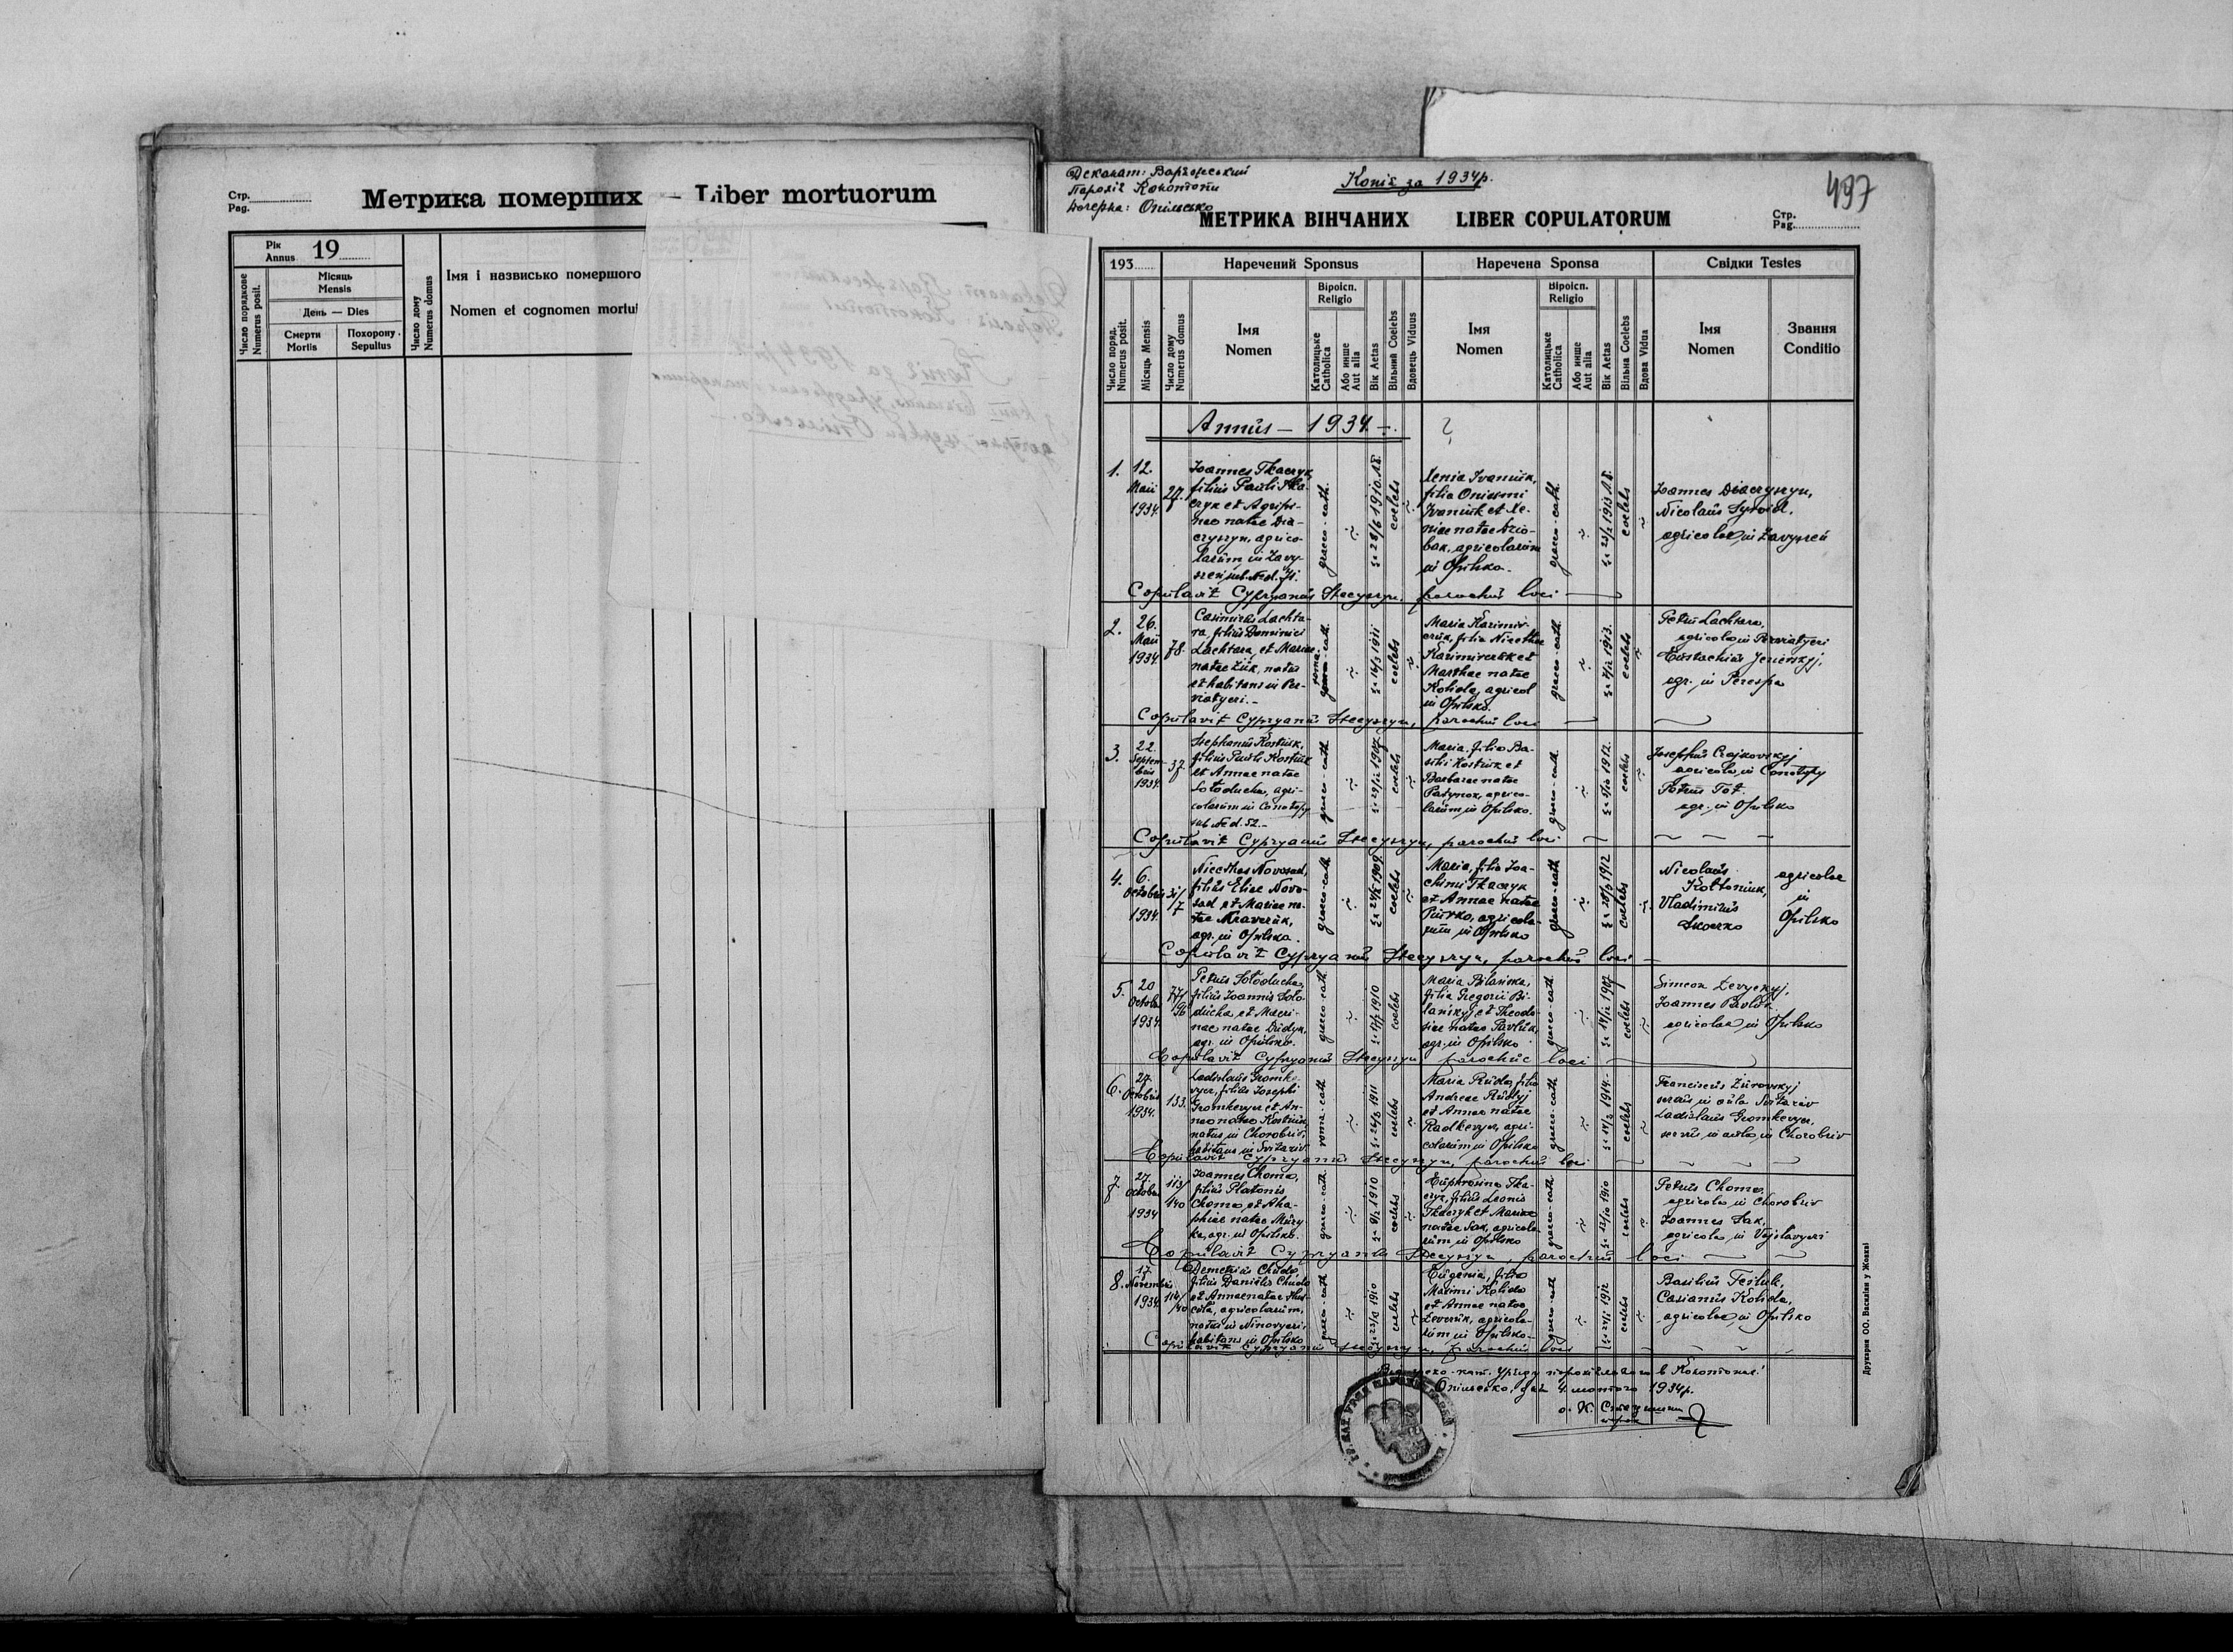 Стр.
Pag.
Метрика померших — Liber mortuorum
Рік
Annus 19
Число порядкове
Numerus posit.
Місяць
Mensis
День — Dies
Смерти
Mortis
Похорону
Sepultus
Число дому
Numerus domus
Імя і назвисько помершого
Nomen et cognomen mortui
Деканат:
Парохія Конотопи
Дочерна: Опільсько
Копія за 1934р.
497
МЕТРИКА ВІНЧАНИХ LIBER COPULATORUM
Стр.
Pag.
193
Наречений Sponsus
Наречена Sponsa
Свідки Testes
Число поряд.
Numerus posit.
Місяць Mensis
Число дому
Numerus domus
Імя
Nomen
Віроісп.
Religio
Католицьке
Catholica
Або инше
Aut alia
Вік Aetas
Вільний Coelebs
Вдовець Viduus
Імя
Nomen
Віроісп.
Religio
Католицьке
Catholica
Або инше
Aut alia
Вік Aetas
Вільна Coelebs
Вдова Vidua
Імя
Nomen
Звання
Conditio
Annus — 1934. —
?
1.
12.
Maii
1934.
27.
Joannes Tkaczyk,
filius Pauli Tka-
czyk et Agripi-
nae natae Dia-
czyszyn, agrico-
larum in Zavy-
szeń, sub №
graeco-cath.
28/6 1910
coelebs
Xenia Ivaniuk,
filia Onisimi
Ivaniuk et Xe-
niae natae Dzio-
bak, agricolarum
in Opilsko.
graeco-cath.
1913
coelebs
Joannes Diaczyszyn,
Nicolaus Syroid,
agricolae in Zavyszeń
Copulavit Cypryanus Stecyszyn, parochus loci
2.
26.
Maii
1934.
78.
Casimirus Lachta-
ra, filius Dominici
Lachtara, et Mariae
natae Żuk, natus
et habitans in Per-
viatyczi.
roma-cath.
16/3 1911
coelebs
Maria Kazimir-
czuk, filia Nicethae
Kazimirczuk et
Marthae natae
Kohda, agricol
in Opilsko.
graeco-cath.
1913.
coelebs
Petrus Lachtara,
agricola in Perviatyczi
Eustachius Jezierskyj,
agr. in Perespa
Copulavit Cypryanus Stecyszyn, parochus loci
3.
22.
Septem-
bris
1934.
37.
Stephanus Kostiuk,
filius Pauli Kostiuk
et Annae natae
Sołoducha, agri-
colarum in Conotopy
sub № d. 52.
graeco-cath.
29/12 1907
coelebs
Maria, filia Ba-
silii Kostiuk et
Barbarae natae
Patynok, agrico-
larum in Opilsko.
graeco-cath.
1912.
coelebs
Josephus Czajkovskyj
agricola in Conotopy
Petrus Tot.
agr. in Opilsko
Copulavit Cypryanus Stecyszyn, parochus loci
4.
6.
Octobris
1934.
31/
7
Nicethas Novosad,
filius Eliae Novo-
sad et Mariae na-
tae Kravczuk,
agr. in Opilsko.
graeco-cath.
1909
coelebs
Maria, filia Joa-
chimi Tkaczyk
et Annae natae
Pirko, agricola-
rum in Opilsko
graeco-cath.
1912
coelebs
Nicolaus
Kołtoniuk,
Vladimirus
Skoczko
agricolae
in
Opilsko
Copulavit Cypryanus Stecyszyn, parochus loci
5.
20
Octobr.
1934.
77/
96
Petrus Sołoducha,
filius Joannis Soło-
ducha, et Macri-
nae natae Dudyk,
agr. in Opilsko.
graeco-cath
1910
coelebs
Maria Bilanska,
filia Gregorii Bi-
lanskyj et Theodo-
siae natae Pavluk,
agr. in Opilsko
graeco-cath.
1907
coelebs
Simeon Levyckyj,
Joannes Pavluk
agricolae in Opilsko
Copulavit Cypryanus Stecyszyn parochus loci
6.
27.
Octobris
1934.
133.
Ladislaus Gromke-
vycz, filius Josephi
Gromkevycz et An-
nae natae Kostiuk,
natus in Chorobriv,
habitans in Svitaziv
roma-cath
26/3 1911
coelebs
Maria Ruda, filia
Andreae Rudyj
et Annae natae
Radkevycz, agri-
colarum in Opilsko
graeco-cath
1914.
coelebs
Franciscus Żurovskyj
servus in aula Svitaziv
Ladislaus Gromkevycz,
servus in aula in Chorobriv
Copulavit Cypryanus Stecyszyn, parochus loci
7.
27.
Octobr.
1934
113/
140
Joannes Choma,
filius Platonis
Choma et Aha-
phiae natae Mury-
ka, agr. in Opilsko.
graeco-cath.
1910
coelebs
Euphrosina Tka-
czyk, filia Leonis
Tkaczyk et Mariae
natae Sak, agricola-
rum in Opilsko
graeco-cath.
1910
coelebs
Petrus Choma,
agricola in Chorobriv
Joannes Sak,
agricola in Vojslavyczi
Copulavit Cypryanus Stecyszyn, parochus loci
8.
17.
Novembris
1934.
114/
140
Demetrius Chuda,
filius Danielis Chuda
et Annae natae
agricolarum,
natus in Ninovyczi,
habitans in Opilsko
graeco-cath
1910
coelebs
Eugenia, filia
Maximi Kohda
et Annae natae
Levczuk, agricola-
rum in Opilsko
graeco-cath
1912
coelebs
Basilius Tesluk,
Casianus Kohda,
agricolae in Opilsko
Copulavit Cypryanus Stecyszyn, parochus loci
Від греко-кат. Уряду парохіяльного в Конотопах
Опільсько, дня 4 лютого 1934р.
о. К. Стецишин
парох
Друкарня ОО. Василіян у Жовкві